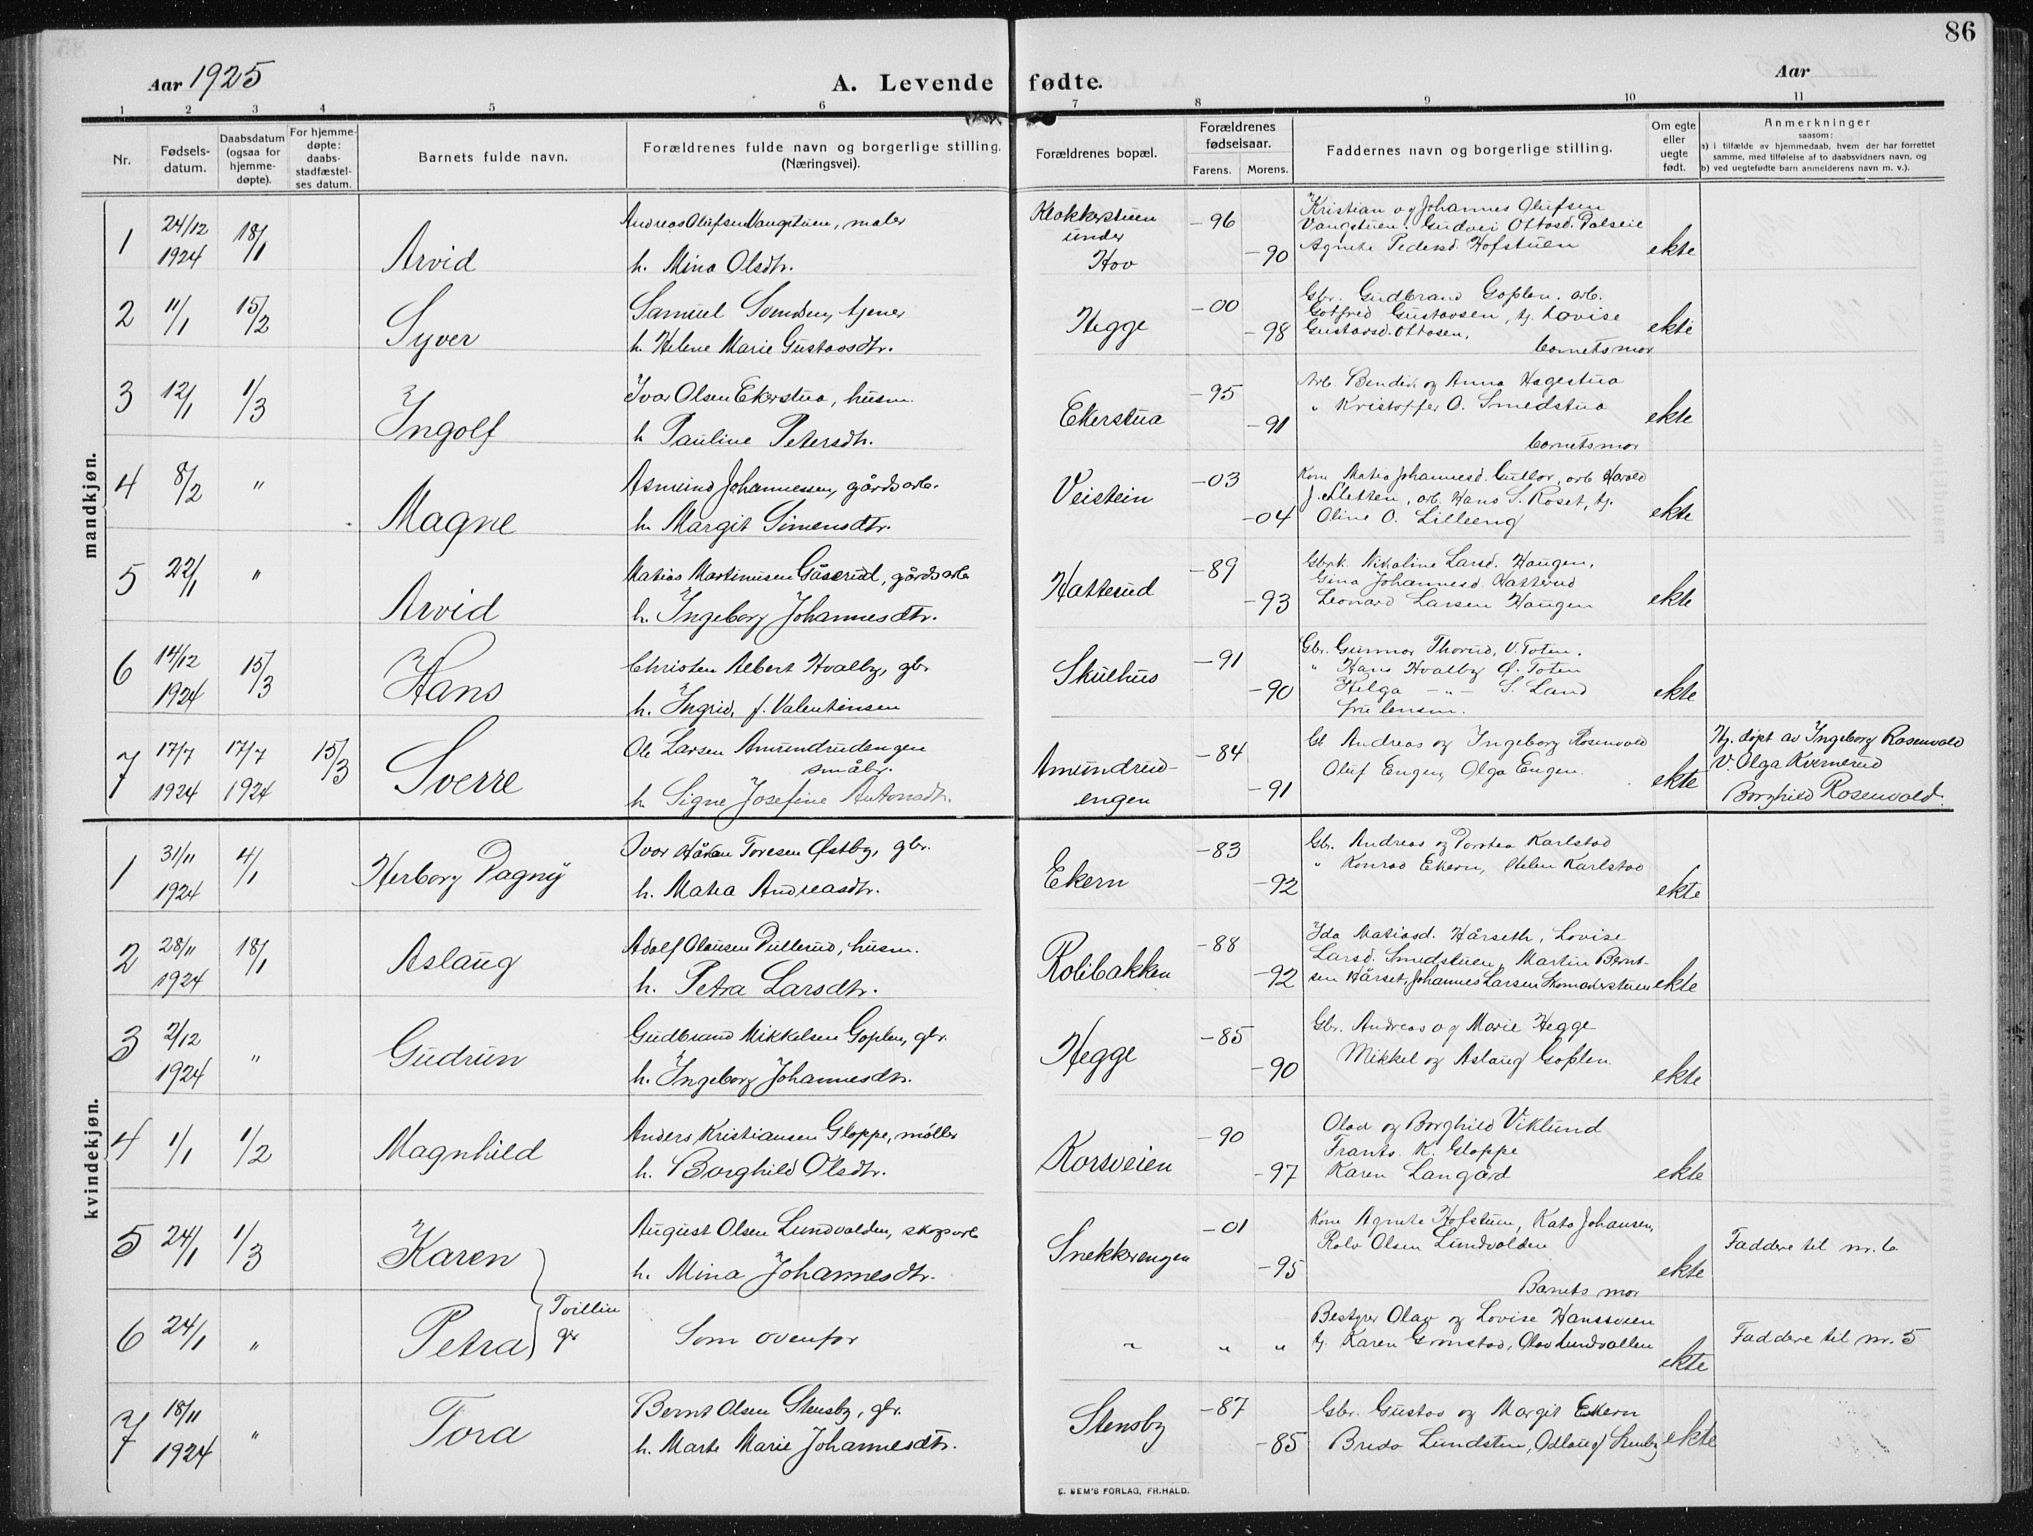 86
Aar 1925
A. Levende fødte.
Aar
1 2 3 4 5 6 7 8 9 10 11
Nr.
Fødsels-
datum.
Daabsdatum
(ogsaa for
hjemme-
døpte).
For hjemme-
døpte:
daabs-
stadfæstel-
ses datum.
Barnets fulde navn.
Forældrenes fulde navn og borgerlige stilling.
(Næringsvei).
Forældrenes bopæl.
Forældrenes
fødselsaar.
Farens. Morens.
Faddernes navn og borgerlige stilling.
Om egte
eller
uegte
født.
Anmerkninger
saasom:
a) i tilfælde av hjemmedaab, hvem der har forrettet
samme, med tilføielse af to daabsvidners navn, og
b) ved uegtefødte barn anmelderens navn m. v.).
mandkjøn.
1 24/12 1924 18/1 Arvid
Andreas Olufsen Vangstuen, maler
h. Mina Olsdtr.
Klokkerstuen
under
Hov
-96 -90
Kristian og Johannes Olufsen
Vangstuen, Gudvei Ottosd. Dalseie
Agnete Pedersd. Hofstuen
ekte
2 11/1 15/2 Syver
Samuel tjener
h. Helene Marie Gustavsdtr.
Hegge
-00 -98
Gbr. Gudbrand Goplen, arb.
Gotfred Gustavsen, tj. Lovise
Gustavsd. Ottosen,
barnets mor
ekte
3 12/1 1/3 Ingolf
Ivar Olsen Ekerstua, husm.
h. Pauline Petersdtr.
Ekerstua
-95 -91
Arb. Bendik og Anna Hagestua
" Kristoffer O. Smedstua
barnets mor
ekte
4 8/2 " Magne
Asmund Johannessen, gårdsarb.
h. Margit Simensdtr.
Veistein
-03 -04
Kone Matia Johannesd. Gullor, arb. Harald
J. Sletten, arb. Hans S. Roset, tj.
Oline O. Lilleeng
ekte
5 22/1 " Arvid
Matias Martinusen Gåserud, gårdsarb
h. Ingeborg Johannesdtr.
Hatterud
-89 -93
Gbrk. Nikoline Larsd. Haugen,
Gina Johannesd. Hatterud
Leonard Larsen Haugen
ekte
6 14/12 1924 15/3 Hans
Christen Albert Hvalby, gbr
h. Ingrid, f. Valentinsen
Skulhus
-91 -90
Gbr. Gunnar Thorud, V. Toten.
" Hans Hvalby Ø. Toten
Helga -"- S. Land
fru lensm.
ekte
7 17/7 1924 17/7 1924 15/3 Sverre
Ole Larsen Amundrudengen
småbr.
h. Signe Josefine Antonsdtr.
Amundrud-
engen
-84 -91
Gb Andreas og Ingeborg Rosenvald
Oluf Engen, Olga Engen.
ekte
Hj. døpt av Ingeborg Rosenvald
V. Olga Kvernerud
Borghild Rosenvald.
kvindekjøn.
1 31/11 1924 4/1 Herborg Dagny
Ivar Håkon Toresen Østby, gbr.
h. Matea Andreasdtr.
Ekern
-83 -92
Gb. Andreas og Dortea Karlstad
" Konrad Ekern, Helen Karlstad
ekte
2 28/11 1924 18/1 Aslaug
Adolf Olausen Dullerud, husm.
h. Petra Larsdtr.
Rolibakken
-88 -92
Ida Matiasd. Hårseth, Lovise
Larsd. Smedstuen, Martin Bernt-
sen Hårset, Johannes Larsen Skomakerstuen
ekte
3 2/12 1924 " Gudrun
Gudbrand Mikkelsen Goplen, gbr.
h. Ingeborg Johannesdtr.
Hegge
-85 -90
Gbr. Andreas og Marie Hegge
Mikkel og Aslaug Goplen
ekte
4 1/1 1/2 Magnhild
Anders Kristiansen Gloppe, møller
h. Borghild Olsdtr.
Korsveien
-90 -97
Olav og Borghild Viklund
Frants K. Gloppe
Karen Langård
ekte
5 24/1 1/3 Karen
August Olsen Lundvalden, skogsarb
h. Mina Johannesdtr.
Snekkerengen
-01 -95
Kone Agnete Hofstuen, Kato Johansen,
Rolv Olsen Lundvolden
Barnets mor
ekte
Faddere til nr. 6
6 24/1 " Petra
Tvillin
ger
Som ovenfor
" " "
Bestyrer Olav og Lovise Hansveen
tj. Karen Grønstad, Olav Lundvallen
ekte
Faddere til nr. 5
7 18/11 1924 " Tora
Bernt Olsen Stensby, gbr.
h. Marte Marie Johannesdtr.
Stensby
-87 -85
Gbr. Gustav og Margit Ekern
Breda Lundsten, Odlaug Stensby
ekte
E. SEM'S FORLAG, FR.HALD.